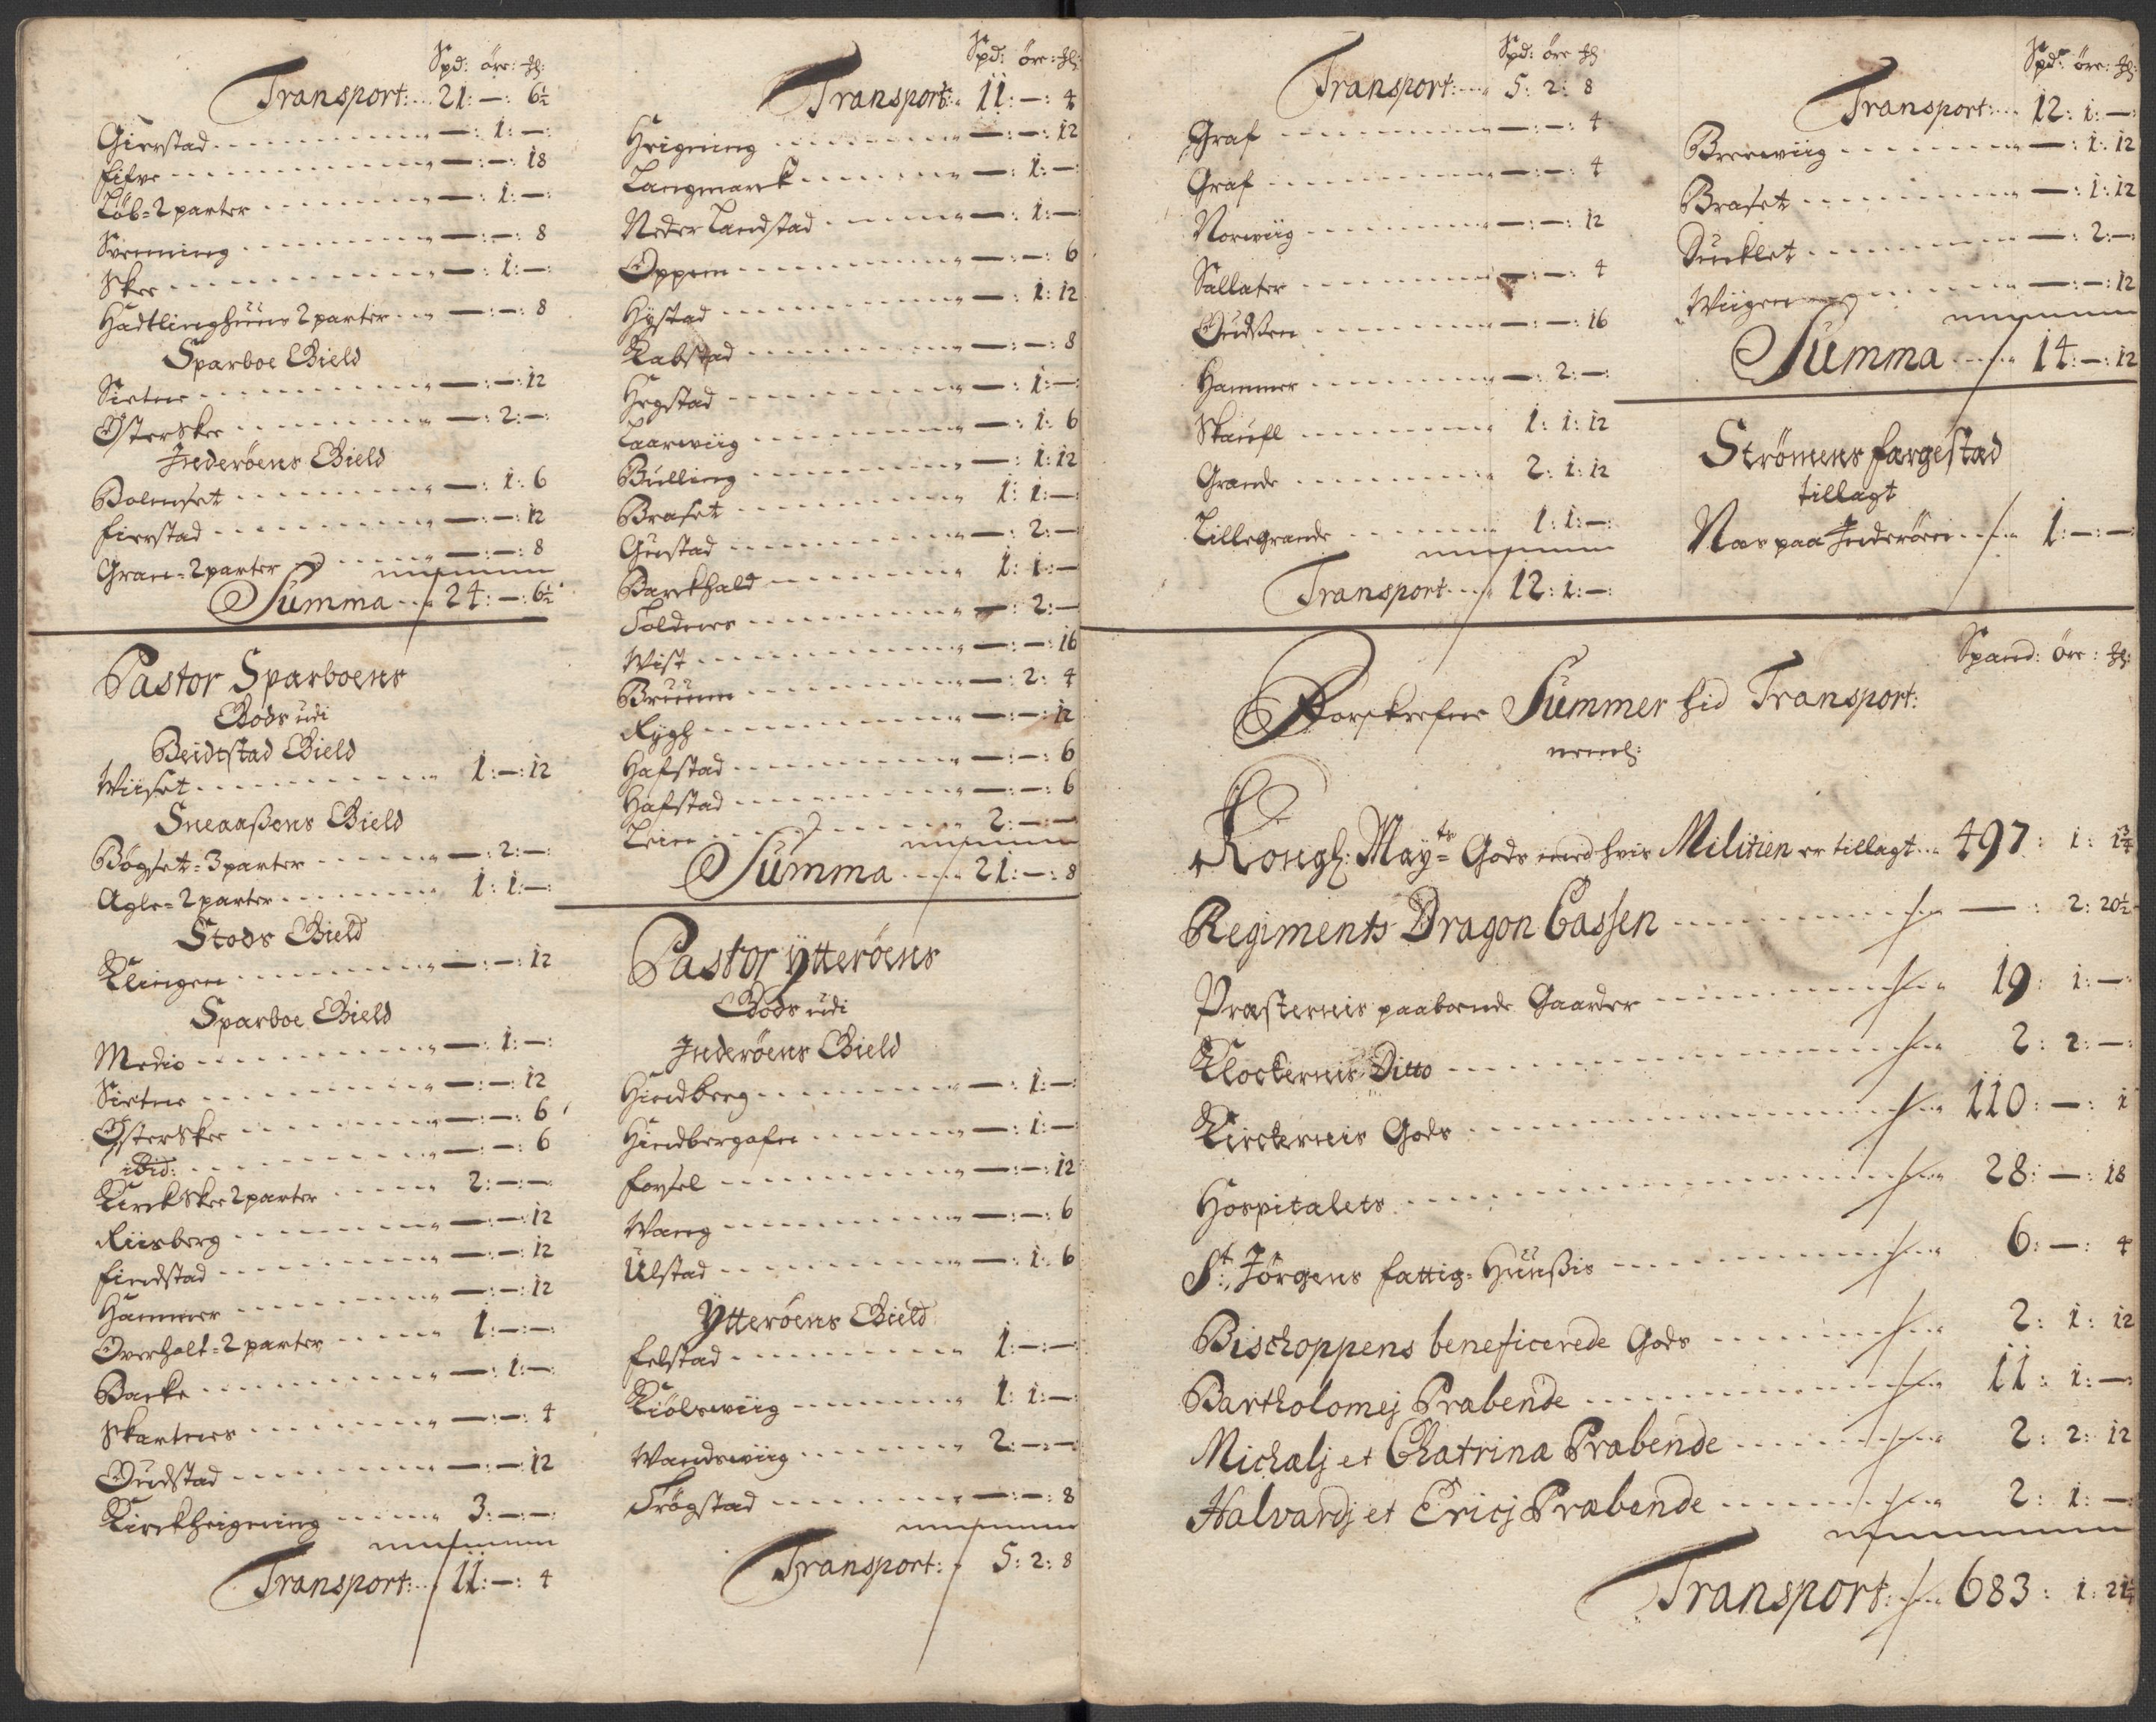 Spd: öre: ₰:
Transport: 21: —: 6½
Gierstad —: 1: —:
Fifve —: —: 18
Löb = 2 parter —: 1: —:
Svenning —: —: 8
Skee —: 1: —:
Hadtlinghuuns 2 parter —: —: 8
Sparboe Gield
Sietne —: —: 12
Österskee —: 2: —:
Inderöens Gield
Bolmset —: 1: 6
Fierstad —: —: 12
Gran = 2 parter —: —: 8
Summa 24: —: 6½
Pastor Sparboens
Gods udi
Beidtstad Gield
Wiiset 1: —: 12
Sneaaßens Gield
Bögset = 3 parter —: 2: —:
Agle = 2 parter 1: 1: —:
Stods Gield
Klingen —: —: 12
Sparboe Gield
Medio —: 1: —:
Sietne —: —: 12
Österskee —: —: 6
ibid: —: —: 6
Kirckskee 2 parter 2: —: —
Riisberg —: —: 12
Findstad —: —: 12
Hammer —: —: 12
Overholt = 2 parter 1: —: —
Backe —: 1: —:
Skartnes —: —: 4
Oudstad —: —: 12
Kirckheigning 3: —: —:
Transport: 11: —: 4
Spd: öre: ₰:
Transport: 11: —: 4
Heigning —: —: 12
Langmarck —: 1: —:
Neder Landstad —: 1: —:
Oppem —: —: 6
Hÿstad —: 1: 12
Kabstad —: —: 8
Hegstad —: 1: —:
Laarwiig —: 1: 6
Bulling —: 1: 12
Braset 1: 1: —:
Gustad —: 2: —:
Barckhald 1: 1: —
Toldnes —: 2: —
Wist —: —: 16
Bruum —: 2: 4
Rygh —: —: 12
Hafstad —: —: 6
Hafstad —: —: 6
Lein 2: —: —
Summa 21: —: 8
Pastor Ÿtteröens
Gods udi
Inderöens Gield
Hindberg —: 1: —:
Hindbergafn —: 1: —:
Forsel —: —: 12
Wang —: —: 6
Ulstad —: 1: 6
Ÿtteröens Gield
Felstad 1: —: —:
Kiölswiig 1: 1: —:
Wandswiig 2: —: —
Trögstad —: —: 8
Transport: 5: 2: 8
Spd: öre ₰
Transport: 5: 2: 8
Graf —: —: 4
Graf —: —: 4
Norwiig —: —: 12
Sallater —: —: 4
Oudsten —: —: 16
Hammer —: 2: —:
Skaufl 1: 1: 12
Grande 2: 1: 12
Lillegrande 1: 1: —:
Transport 12: 1: —:
Spd: öre: ₰:
Transport: 12: 1: —:
Breewiig —: 1: 12
Braset —: 1: 12
Duuklet —: 2: —:
Wiigen —: —: 12
Summa 14: —: 12
Strömens færgestad
tillagt
Næs paa Inderöen 1: —: —
Spand: öre: ₰:
Forskrefne Summer hid Transport:
neml:
Kongl: Mayts Gods med hvis Militien er tillagt 497: 1: 1¾
Regiments Dragon Cassen —: 2: 20½
Præsternis paaboende Gaarder 19: 1: —:
Klockernis Ditto 2: 2: —:
Kirckernis Gods 110: —: 1
Hospitalets 28: —: 18
St: Jörgens fattig = Huußis 6: —: 4
Bischoppens beneficerede Gods 2: 1: 12
Bartholomej Præbende 11: 1: —:
Michælj et Chatrina Præbende 2: 2: 12
Halvardj et Ericj Præbende 2: 1: —
Transport: 683: 1: 21¼